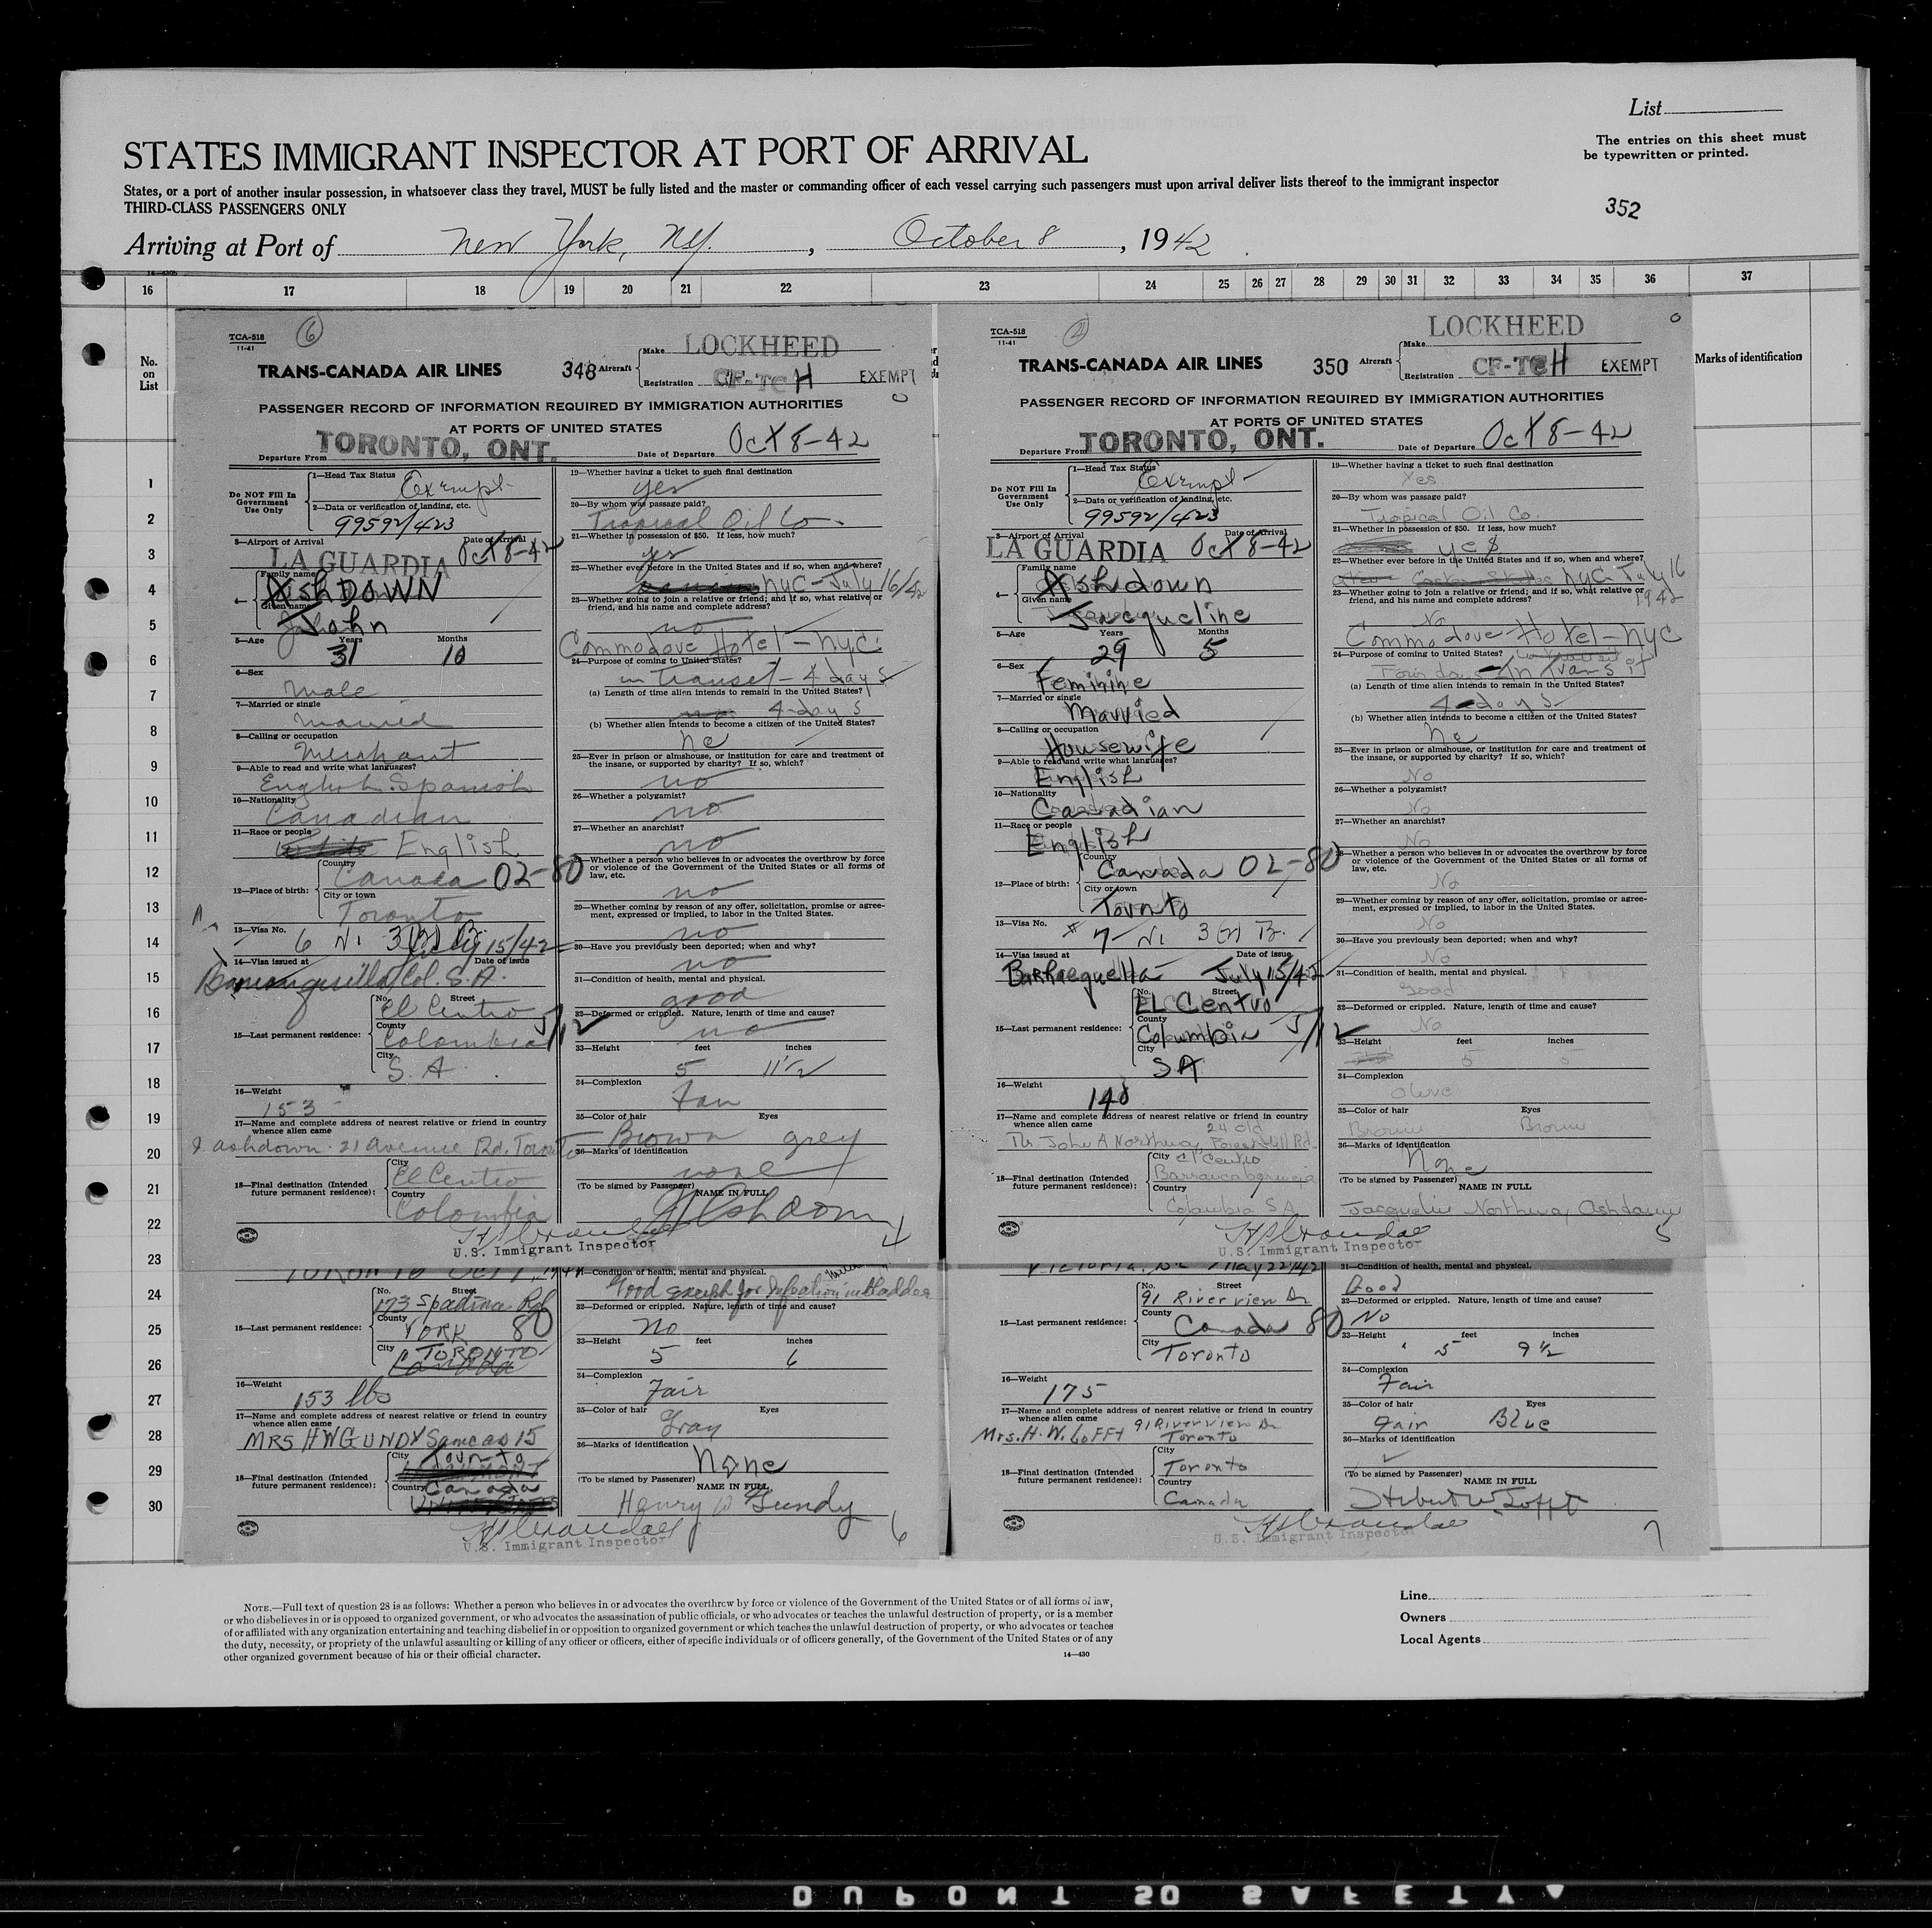 List
The entries on this sheet must
be typewritten or printed.
STATES IMMIGRANT INSPECTOR AT PORT OF ARRIVAL
States, or a port of another insular possession, in whatsoever class they travel, MUST be fully listed and the master or commanding officer of each vessel carrying such passengers must upon arrival deliver lists thereof to the immigrant inspector
THIRD-CLASS PASSENGERS ONLY
352
Arriving at Port of New York, NY. , October 8 , 1942
16 17 18 19 20 21 22 23 24 25 26 27 28 29 30 31 32 33 34 35 36 37
No. on List
Marks of identification
1
2
3
4
5
6
7
8
9
10
11
12
13
14
15
16
17
18
19
20
21
22
23
24
25
26
27
28
29
30
TCA-518
11-41
6
TRANS-CANADA AIR LINES
348 Aircraft
Make LOCKHEED
Registration CF-TCH EXEMPT
PASSENGER RECORD OF INFORMATION REQUIRED BY IMMIGRATION AUTHORITIES
AT PORTS OF UNITED STATES
Departure From TORONTO, ONT. Date of Departure Oct 8-42
Do NOT Fill In Government Use Only
1—Head Tax Status Exempt
2—Data or verification of landing, etc.
99592/423
3—Airport of Arrival LA GUARDIA Date of Arrival Oct 8-42
4— Family name AshDOWN
Given name John
5—Age Years 31 Months 10
6—Sex
Male
7—Married or single
Married
8—Calling or occupation
Merchant
9—Able to read and write what languages?
English. Spanish
10—Nationality
Canadian
11—Race or people
White English
12—Place of birth: Country Canada 02-80
City or town Toronto
13—Visa No. 6 NI 3(2)
14—Visa issued at Date of issue July 15/42
Barranquilla Col. S.A.
15—Last permanent residence: No. Street El Centro
County Colombia
City S.A.
16—Weight
153
17—Name and complete address of nearest relative or friend in country
whence alien came
ashdown 21 Avenue Rd. Toronto
18—Final destination (Intended future permanent residence): City El Centro
Country Colombia
19—Whether having a ticket to such final destination
yes
20—By whom was passage paid?
Tropical Oil Co.
21—Whether in possession of $50. If less, how much?
yes
22—Whether ever before in the United States and if so, when and where?
NYC-July 16/42
23—Whether going to join a relative or friend; and if so, what relative or
friend, and his name and complete address?
no
Commodore Hotel - NYC.
24—Purpose of coming to United States?
in transit - 4 days
(a) Length of time alien intends to remain in the United States?
4-days
(b) Whether alien intends to become a citizen of the United States?
no
25—Ever in prison or almshouse, or institution for care and treatment of
the insane, or supported by charity? If so, which?
no
26—Whether a polygamist?
no
27—Whether an anarchist?
no
Whether a person who believes in or advocates the overthrow by force
or violence of the Government of the United States or all forms of
law, etc.
no
29—Whether coming by reason of any offer, solicitation, promise or agree-
ment, expressed or implied, to labor in the United States.
no
30—Have you previously been deported; when and why?
no
31—Condition of health, mental and physical.
good
32—Deformed or crippled. Nature, length of time and cause?
no
33—Height feet inches
5 11½
34—Complexion
Fair
35—Color of hair Eyes
Brown grey
36—Marks of identification
none
(To be signed by Passenger)
NAME IN FULL
Ashdown
4
U.S. Immigrant Inspector
TCA-518
11-41
TRANS-CANADA AIR LINES
350 Aircraft
Make LOCKHEED
Registration CF-TCH EXEMPT
PASSENGER RECORD OF INFORMATION REQUIRED BY IMMIGRATION AUTHORITIES
AT PORTS OF UNITED STATES
Departure From TORONTO, ONT. Date of Departure Oct 8-42
Do NOT Fill In Government Use Only
1—Head Tax Status Exempt
2—Data or verification of landing, etc.
99592/423
3—Airport of Arrival LA GUARDIA Date of Arrival Oct 8-42
4— Family name Ashdown
Given name Jacqueline
5—Age Years 29 Months 5
6—Sex
Feminine
7—Married or single
Married
8—Calling or occupation
Housewife
9—Able to read and write what languages?
English
10—Nationality
Canadian
11—Race or people
English
12—Place of birth: Country Canada 02-80
City or town Toronto
13—Visa No. 7 NI
14—Visa issued at Date of issue
July 15/42
15—Last permanent residence: No. Street EL Centro
County Columbia
City SA
16—Weight
140
17—Name and complete address of nearest relative or friend in country
whence alien came
24 Old
John A Northway Forest Hill Rd.
18—Final destination (Intended future permanent residence): City El Centro
Country
Columbia S.A.
19—Whether having a ticket to such final destination
Yes
20—By whom was passage paid?
Tropical Oil Co.
21—Whether in possession of $50. If less, how much?
yes
22—Whether ever before in the United States and if so, when and where?
NYC July 16
1942
23—Whether going to join a relative or friend; and if so, what relative or
friend, and his name and complete address?
No
Commodore Hotel-NYC
24—Purpose of coming to United States?
In Transit
(a) Length of time alien intends to remain in the United States?
4-days
(b) Whether alien intends to become a citizen of the United States?
no
25—Ever in prison or almshouse, or institution for care and treatment of
the insane, or supported by charity? If so, which?
No
26—Whether a polygamist?
No
27—Whether an anarchist?
No
Whether a person who believes in or advocates the overthrow by force
or violence of the Government of the United States or all forms of
law, etc.
No
29—Whether coming by reason of any offer, solicitation, promise or agree-
ment, expressed or implied, to labor in the United States.
No
30—Have you previously been deported; when and why?
No
31—Condition of health, mental and physical.
Good
32—Deformed or crippled. Nature, length of time and cause?
No
33—Height feet inches
5 5
34—Complexion
Olive
35—Color of hair Eyes
Brown Brown
36—Marks of identification
None
(To be signed by Passenger)
NAME IN FULL
Jacqueline Northway Ashdown
5
U.S. Immigrant Inspector
15—Last permanent residence: No. Street 173 Spadina Rd
County YORK 80
City TORONTO
Canada
16—Weight
153 lbs
17—Name and complete address of nearest relative or friend in country
whence alien came
MRS HWGUNDY Same as 15
18—Final destination (Intended future permanent residence): City Toronto
Country Canada
31—Condition of health, mental and physical.
Good except for infection in bladder
32—Deformed or crippled. Nature, length of time and cause?
No
33—Height feet inches
5 6
34—Complexion
Fair
35—Color of hair Eyes
Gray
36—Marks of identification
None
(To be signed by Passenger)
NAME IN FULL
Henry W Gundy
6
U.S. Immigrant Inspector
Victoria, BC May 22/42
15—Last permanent residence: No. Street 91 Riverview Dr
County Canada 80
City Toronto
16—Weight
175
17—Name and complete address of nearest relative or friend in country
whence alien came
91 Riverview Dr
Mrs. H. W. LOFFT Toronto
18—Final destination (Intended future permanent residence): City Toronto
Country Canada
31—Condition of health, mental and physical.
Good
32—Deformed or crippled. Nature, length of time and cause?
No
33—Height feet inches
5 9½
34—Complexion
Fair
35—Color of hair Eyes
Fair Blue
36—Marks of identification
(To be signed by Passenger)
NAME IN FULL
Herbert W Lofft
7
U.S. Immigrant Inspector
NOTE.—Full text of question 28 is as follows: Whether a person who believes in or advocates the overthrow by force or violence of the Government of the United States or of all forms of law,
or who disbelieves in or is opposed to organized government, or who advocates the assassination of public officials, or who advocates or teaches the unlawful destruction of property, or is a member
of or affiliated with any organization entertaining and teaching disbelief in or opposition to organized government or which teaches the unlawful destruction of property, or who advocates or teaches
the duty, necessity, or propriety of the unlawful assaulting or killing of any officer or officers, either of specific individuals or of officers generally, of the Government of the United States or of any
other organized government because of his or their official character.
14—430
Line
Owners
Local Agents
DUPONT 50 SAFETY